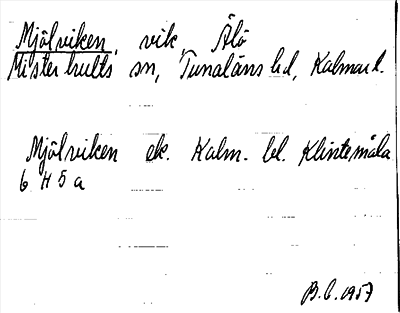 Mjölviken, vik, Älö
Misterhults sn, Tunaläns hd, Kalmar l.
Mjölviken ek. Kalm. bl. Klintemåla
6 H 5 a
B.C. 1957